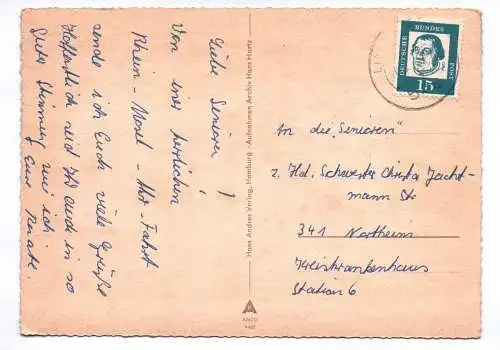 Liebe Senioren!
Von einer herrlichen
Rhein-Mosel-Ahr-Fahrt
sende ich Euch viele Grüße
Hoffentlich seid Ihr auch in so
guter Stimmung wie ich
Eure Renate.
Hans Andres Verlag, Hamburg · Aufnahmen Archiv Hans Hartz
A
ANDO
DEUTSCHE BUNDESPOST
15
An die „Senioren"
z. Hd. Schwester Christa Jacht-
mann Str
341 Northeim
Kreiskrankenhaus
Station 6